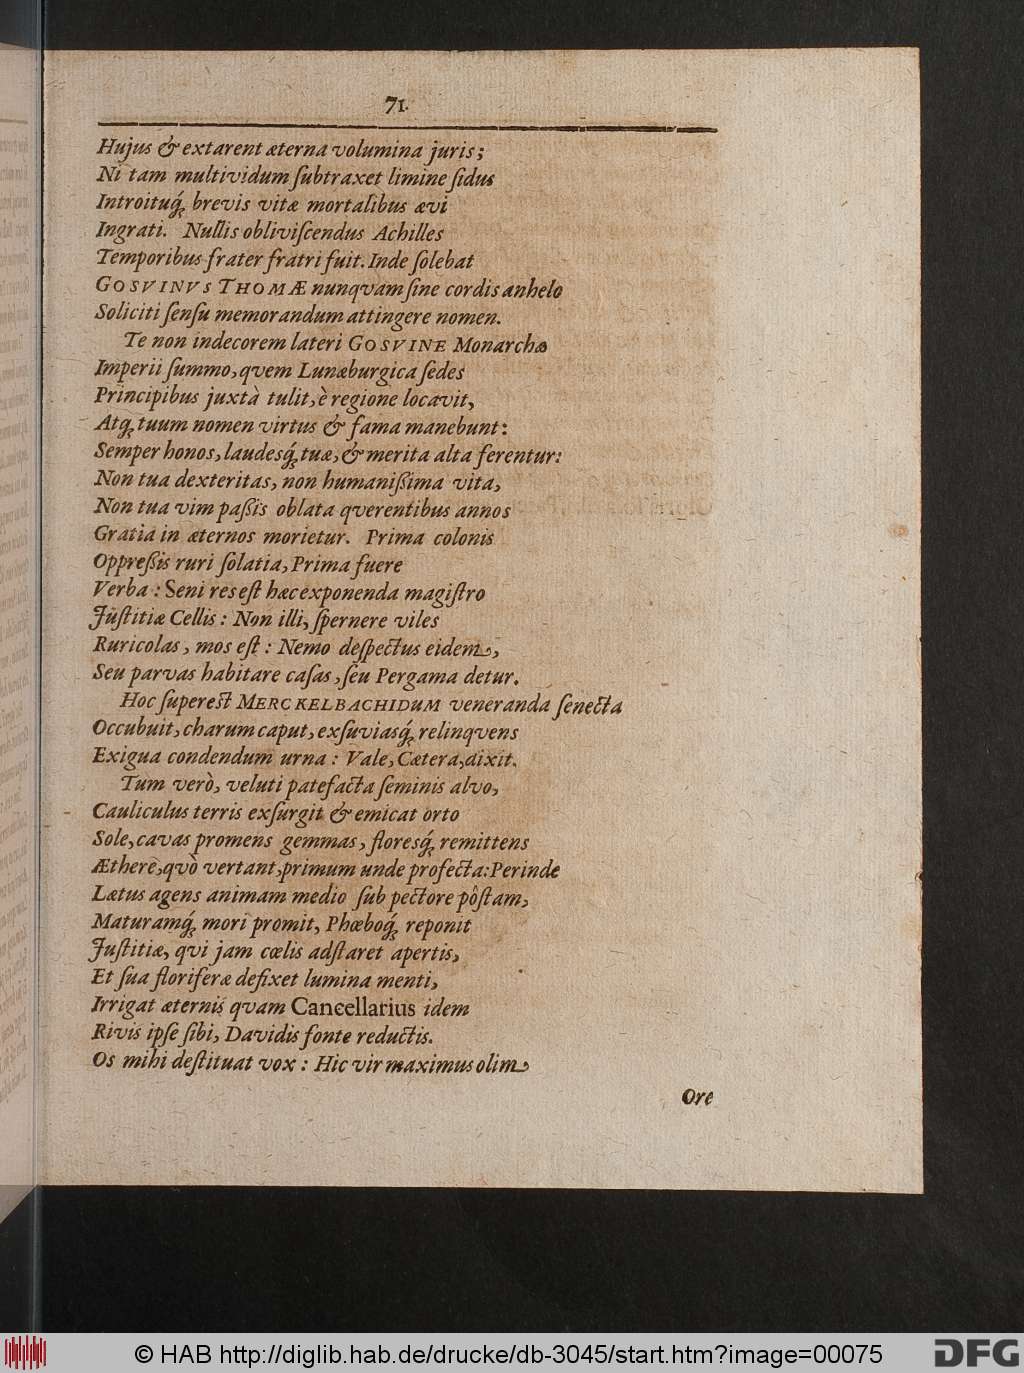 71.
Hujus & extarent æterna volumina juris;
Ni tam multividum ſubtraxet limine ſidus
Introituq́; brevis vitæ mortalibus ævi
Ingrati. Nullis obliviſcendus Achilles
Temporibus frater fratri fuit. Inde ſolebat
GOSVINVS THOMÆ nunqvam ſine cordis anhelo
Soliciti ſenſu memorandum attingere nomen.
Te non indecorem lateri GOSVINE Monarchæ
Imperii ſummo, qvem Lunæburgica ſedes
Principibus juxtà tulit, è regione locavit,
Atq; tuum nomen virtus & fama manebunt:
Semper honos, laudesq́; tuæ, & merita alta ferentur:
Non tua dexteritas, non humaniſſima vita,
Non tua vim paſſis oblata qverentibus annos
Gratia in æternos morietur. Prima colonis
Oppreſſis ruri ſolatia, Prima fuere
Verba: Seni res eſt hæc exponenda magiſtro
Juſtitiæ Cellis: Non illi, ſpernere viles
Ruricolas, mos eſt: Nemo deſpectus eidem,
Seu parvas habitare caſas, ſeu Pergama detur.
Hoc ſupereſt MERCKELBACHIDUM veneranda ſenecta
Occubuit, charum caput, exſuviasq́; relinqvens
Exigua condendum urna: Vale, Cætera, dixit.
Tum verò, veluti patefacta ſeminis alvo,
Cauliculus terris exſurgit & emicat orto
Sole, cavas promens gemmas, floresq́; remittens
Æthere, qvò vertant, primum unde profecta: Perinde
Lætus agens animam medio ſub pectore pôſtam,
Maturamq́; mori promit, Phœboq́; reponit
Juſtitiæ, qvi jam cœlis adſtaret apertis,
Et ſua floriferæ defixet lumina menti,
Irrigat æternis qvam Cancellarius idem
Rivis ipſe ſibi, Davidis fonte reductis.
Os mihi deſtituat vox: Hic vir maximus olim
Ore
© HAB http://diglib.hab.de/drucke/db-3045/start.htm?image=00075
DFG